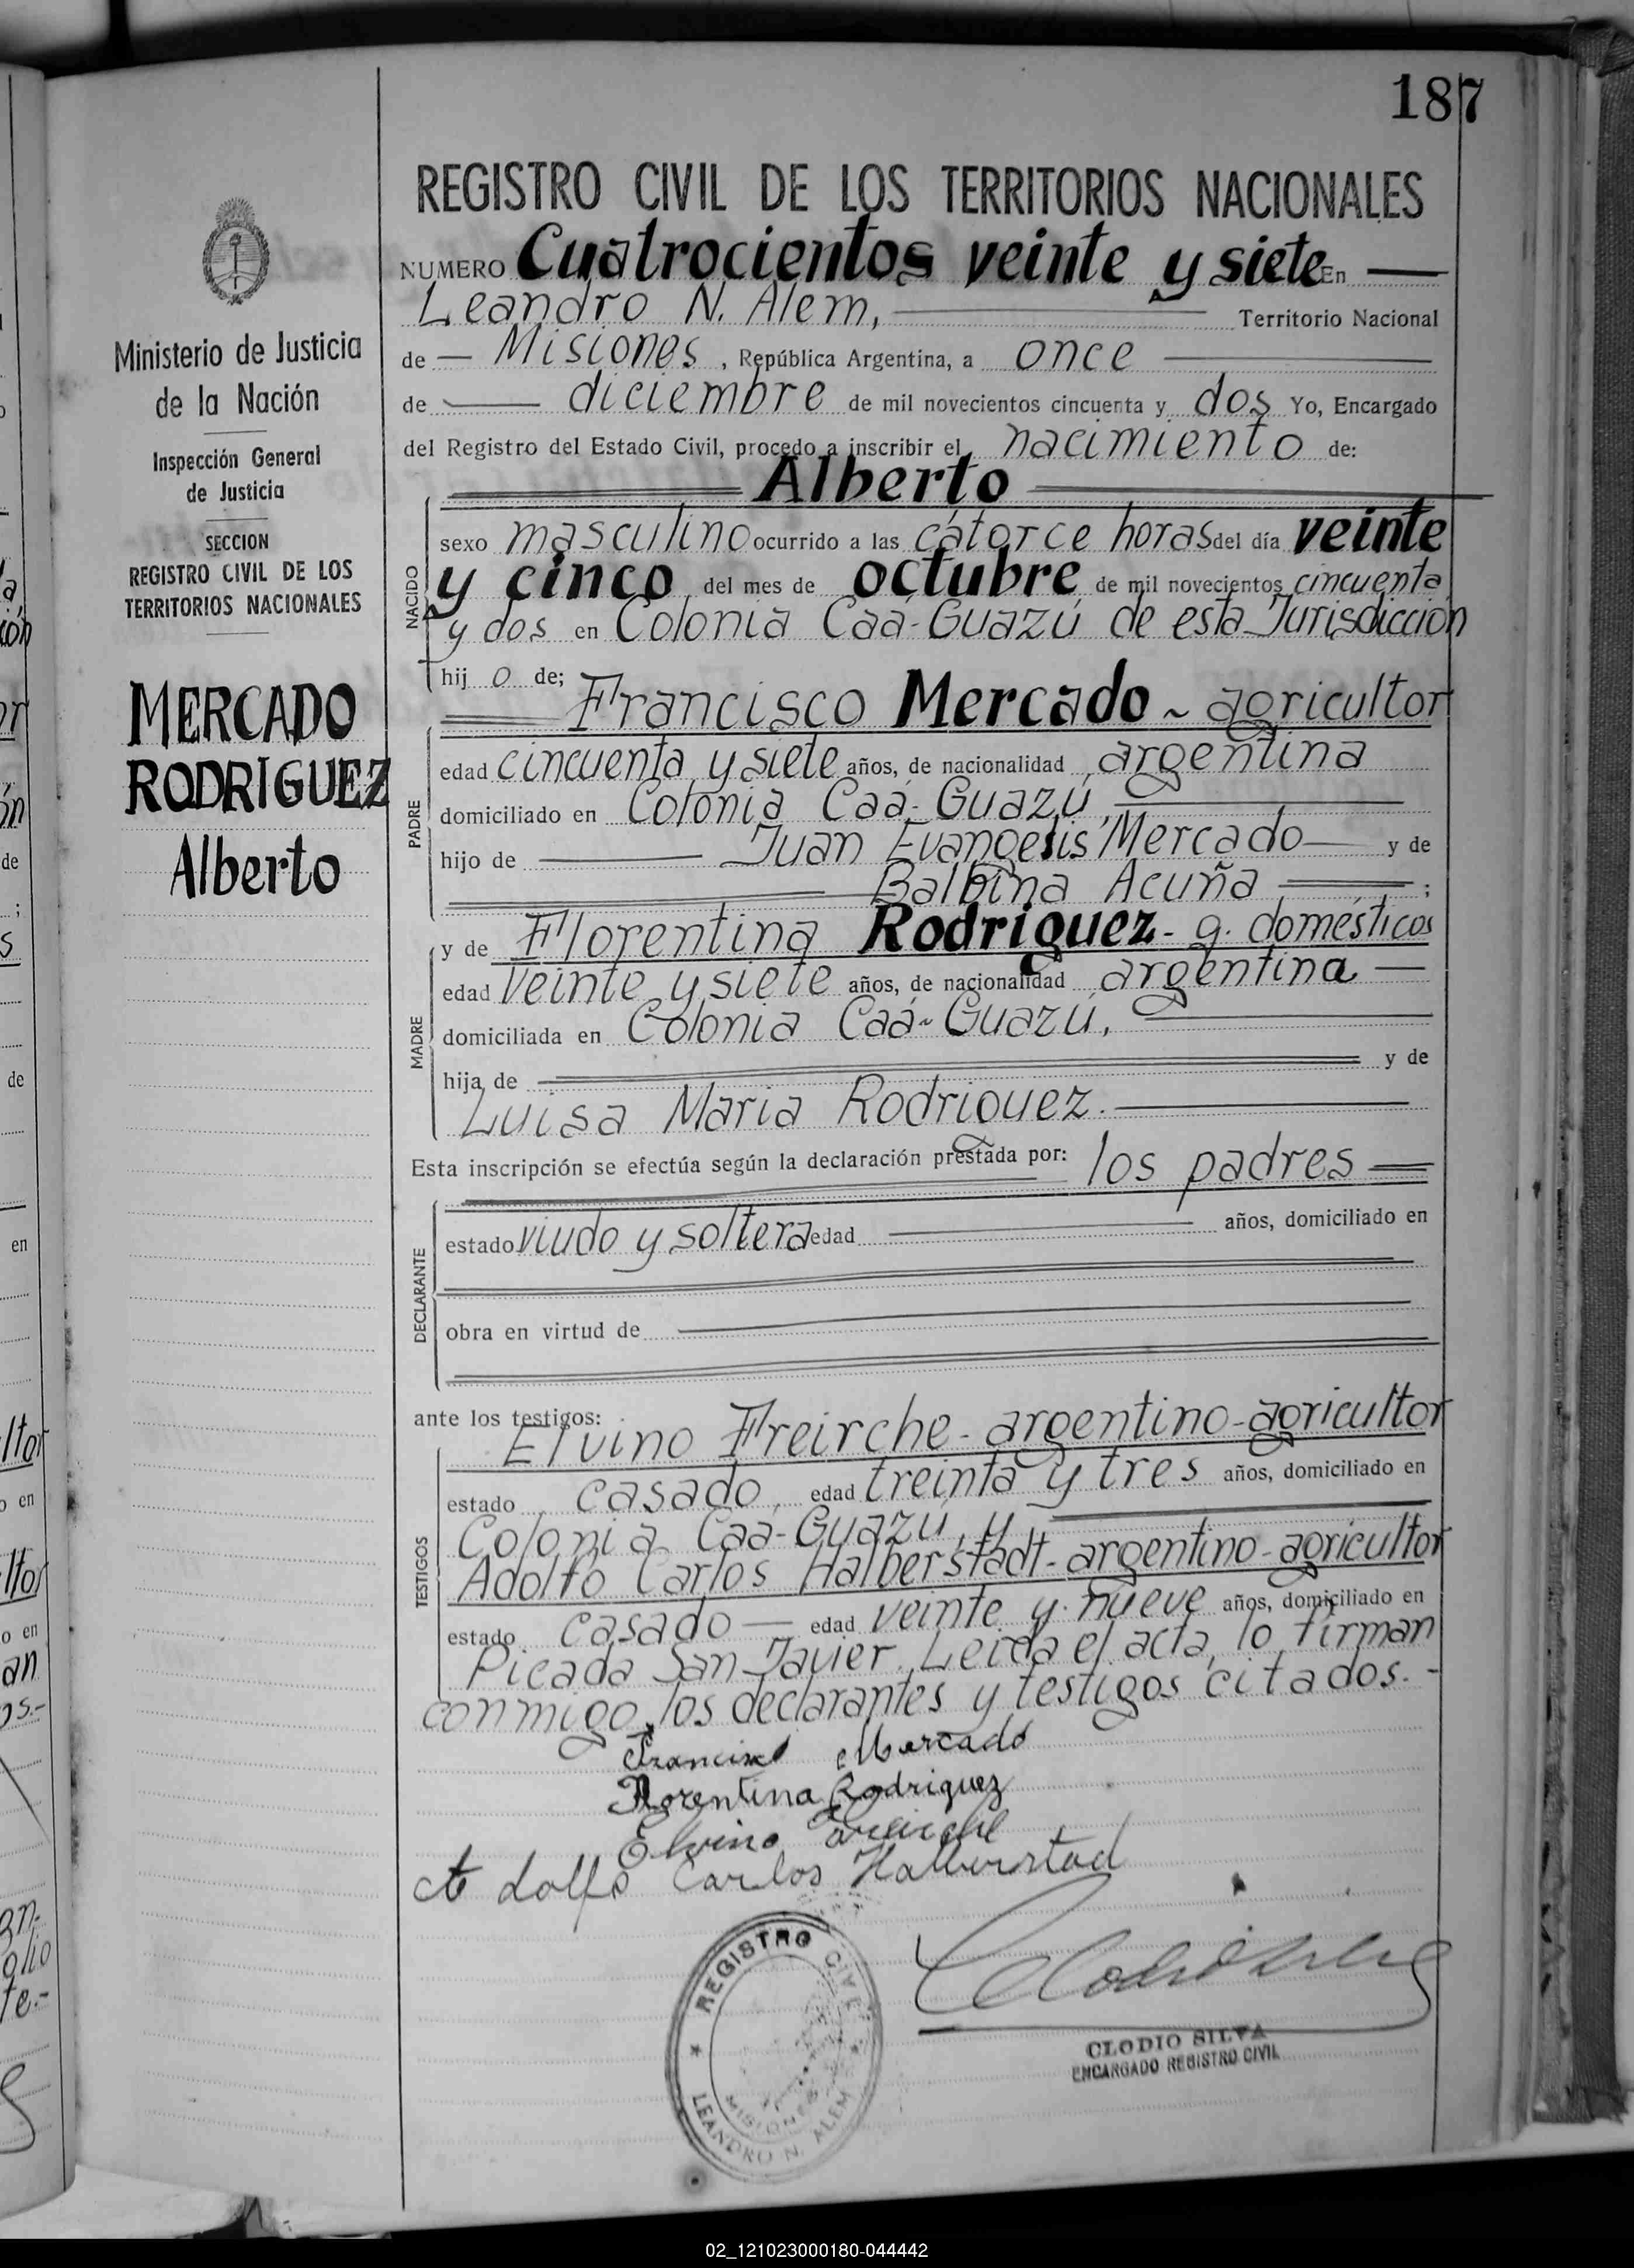 187
REGISTRO CIVIL DE LOS TERRITORIOS NACIONALES
NUMERO Cuatrocientos veinte y siete En
Leandro N. Alem, Territorio Nacional
de Misiones, República Argentina, a once
de diciembre de mil novecientos cincuenta y dos Yo, Encargado
del Registro del Estado Civil, procedo a inscribir el nacimiento de:
Alberto
NACIDO
sexo masculino ocurrido a las catorce horas del día veinte
y cinco del mes de octubre de mil novecientos cincuenta
y dos en Colonia Caá-Guazú de esta Jurisdicción
hijo de;
Francisco Mercado ~ agricultor
PADRE
edad cincuenta y siete años, de nacionalidad argentina
domiciliado en Colonia Caá-Guazú,
hijo de Juan Evangelis Mercado y de
Balbina Acuña ;
MADRE
y de Florentina Rodriguez - q. domésticos
edad veinte y siete años, de nacionalidad argentina
domiciliada en Colonia Caá-Guazú,
hija de y de
Luisa Maria Rodriguez.
Esta inscripción se efectúa según la declaración prestada por: los padres
DECLARANTE
estado viudo y soltera edad años, domiciliado en
obra en virtud de
ante los testigos:
Elvino Freirche - argentino - agricultor
TESTIGOS
estado casado, edad treinta y tres años, domiciliado en
Colonia Caá-Guazú, y
Adolfo Carlos Halberstadt - argentino - agricultor
estado casado edad veinte y nueve años, domiciliado en
Picada San Javier. Leída el acta, lo firman
conmigo, los declarantes y testigos citados. -
Francisco Mercado
Florentina Rodriguez
Elvino Freirche
Adolfo Carlos Halberstad
REGISTRO CIVIL
MISIONES
LEANDRO N. ALEM
CLODIO SILVA
ENCARGADO REGISTRO CIVIL
Ministerio de Justicia
de la Nación
Inspección General
de Justicia
SECCION
REGISTRO CIVIL DE LOS
TERRITORIOS NACIONALES
MERCADO
RODRIGUEZ
Alberto
02_121023000180-044442